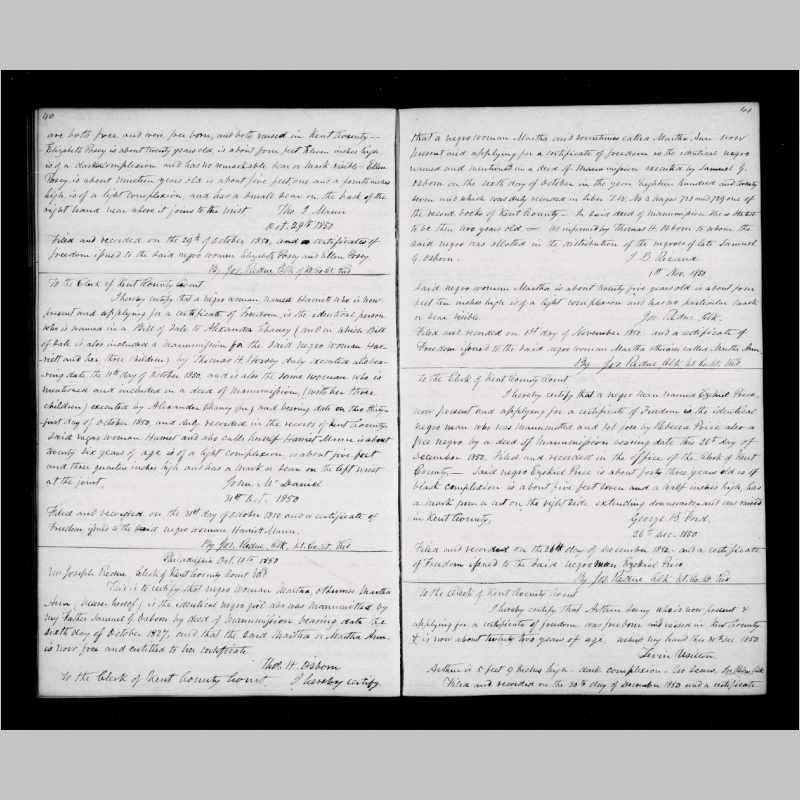 40
are both free and were free born, and both raised in Kent County—
Elizabeth Posey is about twenty years old, is about four feet Eleven inches high
is of a dark complexion and has no remarkable scar or mark visible— Ellen
Posey is about nineteen years old is about five feet one and a inches
high is of a light complexion, and has a small scar on the back of the
right hand near where it joins to the wrist. Tho. J. Mann
Oct. 29th 1850
Filed and recorded on the 29th of October 1850, and certificates of
freedom issued to the said negro women Elizabeth Posey and Ellen Posey
By Jos. Redue Clk of
To the Clerk of Kent County Court
I hereby certify that a negro woman named Harriett who is now
present and applying for a certificate of freedom, is the identical person
who is named in a Bill of Sale to Alexander Chaney (and in which Bill
of Sale is also included a manumission for the said negro woman Har-
riett and her three children) by Thomas H. duly executed and bear-
ing date the 11th day of October 1850, and is also the same woman who is
mentioned and included in a deed of manumission (with her three
children) executed by Alexander Chaney and bearing date on this thirty-
first day of October 1850, and duly recorded in the records of Kent County
Said negro woman Harriet and who calls herself Harriet Mann is about
twenty six years of age is of a light complexion, is about five feet
and three quarters inches high and has a mark or scar on the left wrist
at the joint. John McDaniel
31st Oct. 1850
Filed and recorded on the 31st day of October 1850 and a certificate of
Freedom issued to the said negro woman Harriett Mann.
By Jos. Redue, Clk. Kt. Co. Ct. Md
Philadelphia Oct. 1850
Mr Joseph Redue Clerk of Kent County Court Md
This is to certify that negro Woman Martha, otherwise Martha
Ann, herself, is the identical negro girl who was manumitted by
my Father Samuel G. Osborn by deed of manumission bearing date the
sixth day of October 1827, and that the said Martha or Martha Ann
is now free and entitled to her certificate
Tho. H. Osborn
To the Clerk of Kent County Court I hereby certify
41
that a negro woman Martha and sometimes called Martha Ann now
present and applying for a certificate of freedom is the identical negro
named and mentioned in a deed of manumission executed by Samuel G.
Osborn on the sixth day of October in the year Eighteen hundred and twenty
seven and which was duly recorded in Liber T.W. No 2 pages 728 and 729 one of
the record books of Kent County— In said deed of manumission she is stated
to be then two years old— As informed by Thomas H. Osborn to whom the
said negro was allotted in the distribution of the negroes of late Samuel
G. Osborn. J. B. Ricaud
1st Nov. 1850
Said negro woman Martha is about twenty five years old is about four
feet ten inches high is of a light complexion and has no particular mark
or scar visible. Jos. Redue, Clk.
Filed and recorded on 1st day of November 1850. and a certificate of
Freedom issued to the said negro woman Martha otherwise called Martha Ann.
By Jos Redue Clk Kt. Co. Ct. Md
To the Clerk of Kent County Court
I hereby certify that a negro man named Ezekiel Price,
now present and applying for a certificate of Freedom is the identical
negro man who was manumitted and set free by Rebecca Price also a
free negro by a deed of manumission bearing date this 26th day of
December 1850. Filed and recorded in the office of the Clerk of Kent
County— Said negro Ezekiel Price is about forty three years old is of
black complexion is about five feet seven and a half inches high, has
a mark from a cut on the right side extending downwards and was raised
in Kent County. George B. Ford.
26th Dec. 1850
Filed and recorded on the 26th day of December 1850. and a certificate
of Freedom issued to the said negro man Ezekiel Price
By Jos Redue Clk Kt. Co. Ct. Md
To the Clerk of Kent County Court
I hereby certify that Arthur who is now present &
applying for a certificate of freedom was freeborn and raised in Kent County
& is now about twenty two years of age. Witness my hand this 30th Dec. 1850
Levin
Arthur is 5 feet 9 inches high— dark complexion— no scars. Jos Redue Clk
Filed and recorded on the 30th day of December 1850 and a certificate